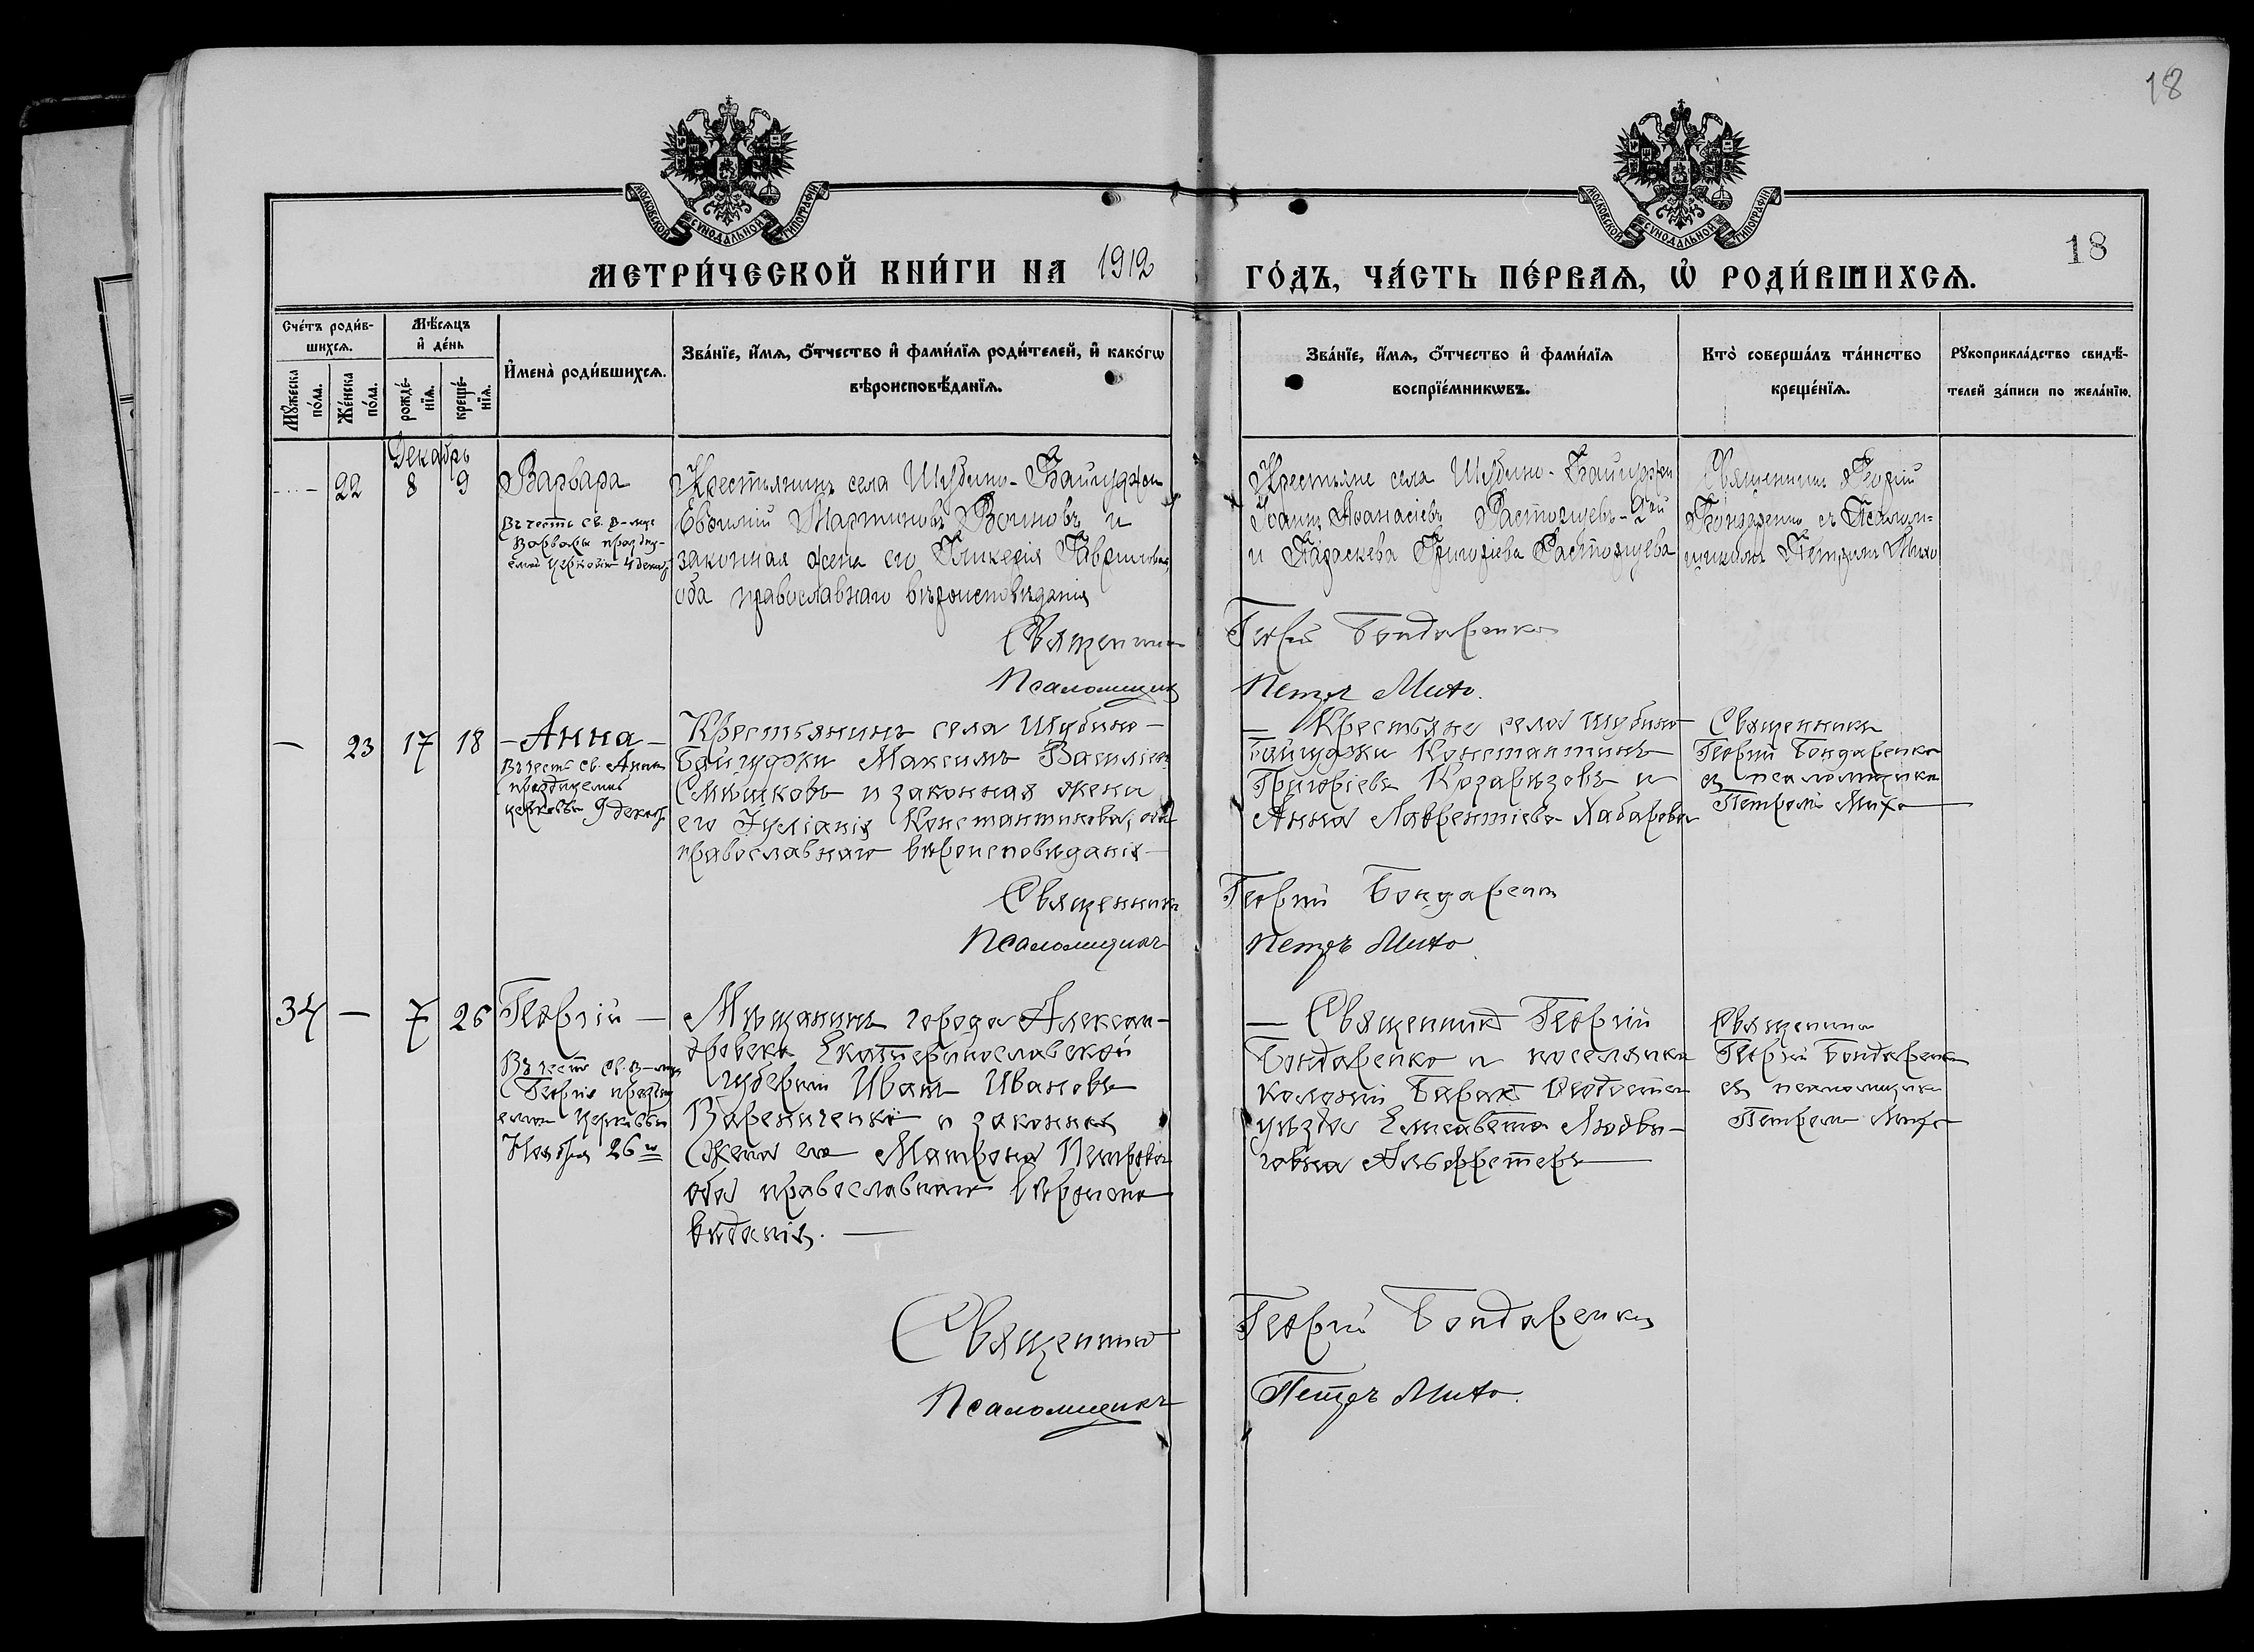 18
МОСКОВСКОЙ СУНОДАЛЬНОЙ ТИПОГРАФІИ
МОСКОВСКОЙ СУНОДАЛЬНОЙ ТИПОГРАФІИ
18
МЕТРИ́ЧЕСКОЙ КНИ́ГИ НА 1912 ГО́ДЪ, ЧА́СТЬ ПЕ́РВАѦ, Ѡ҆ РОДИ́ВШИХСѦ.
Сче́тъ роди́в-
шихсѧ.
Мꙋ́жеска по́ла.
Же́нска по́ла.
Мѣ́сѧцъ
и҆ де́нь
рожде́-
нїѧ.
креще́-
нїѧ.
И҆мена̀ роди́вшихсѧ.
Зва́нїе, и҆́мѧ, ѻ҆́тчество и҆ фами́лїѧ роди́телей, и҆ како́гѡ
вѣроисповѣ́данїѧ.
Зва́нїе, и҆́мѧ, ѻ҆́тчество и҆ фами́лїѧ
воспрїе́мникѡвъ.
Кто̀ соверша́лъ та́инство
креще́нїѧ.
Рꙋкоприкла́дство свидѣ́-
телей за́писи по жела́нїю.
Декабрь
— 22 8 9
Варвара
Въ честь св. В-муц
Варвары праздну-
емой Церковію 4 декаб
Крестьянинъ села Шубино-Байгуджи
Евѳимій Мартиновъ Воиновъ и
законная жена его Гликерія Гавриловна,
оба православнаго вѣроисповѣданія
Крестьяне села Шубино-Байгуджи
Іоаннъ Аѳанасіевъ Расторгуевъ-2ой
и Параскева Григоріева Расторгуева
Священникъ Георгій
Бондаренко съ Псалом-
щикомъ Петромъ Михо
Священникъ Георгій Бондаренко
Псаломщикъ Петръ Михо.
— 23 17 18
— Анна —
Въ честь св. Анны
празднуемыя
церковью 9 декаб.
Крестьянинъ села Шубино-
Байгуджи Максимъ Василіевъ
и законная жена
его Іуліанія Константинова, оба
православнаго вѣроисповѣданія —
— Крестьяне села Шубино-
Байгуджи Константинъ
Григоріевъ Козарѣзовъ и
Анна Лаврентіева Хабарова
Священникъ
Георгій Бондаренко
съ псаломщикомъ
Петромъ Михо —
Священникъ Георгій Бондаренко
Псаломщикъ Петръ Михо
34 — 7 26
Георгій —
Въ честь св. В-муч
Георгія праздну
емаго Церковью
Ноября 26го
Мѣщанинъ города Алексан-
дровска Екатеринославской
губерніи Иванъ Ивановъ
Варениченко и законная
жена его Матрона Петрова
оба православнаго вѣроиспо
вѣданія. —
— Священникъ Георгій
Бондаренко и поселянка
колоніи Ѳеодосійск
уѣзда Елисавета Людви-
говна —
Священникъ
Георгій Бондаренко
съ псаломщикомъ
Петромъ Михо
Священникъ Георгій Бондаренко
Псаломщикъ Петръ Михо.